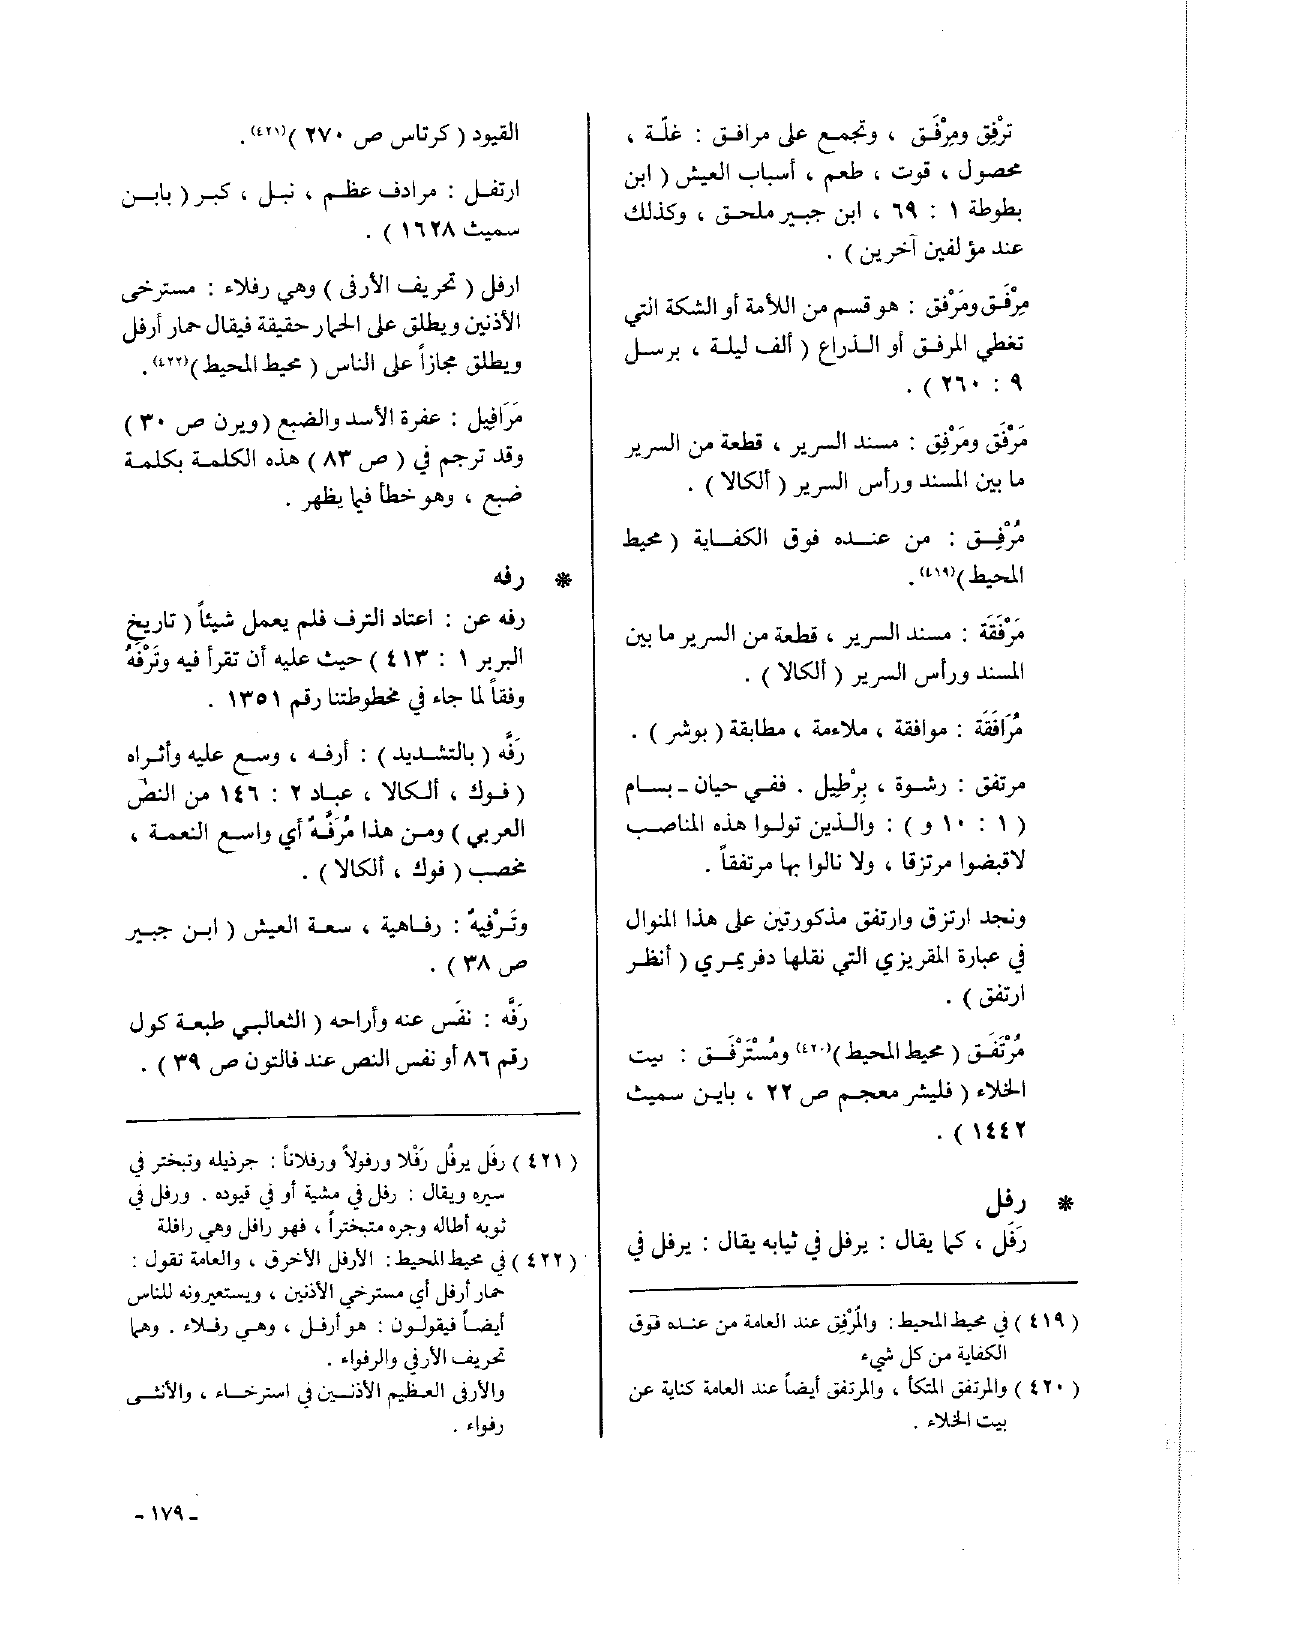 ترْفِق ومِرْفَق ، وتجمع على مرافق : غلّة ،
محصول ، قوت ، طعم ، أسباب العيش ( ابن
بطوطة ١ : ٦٩ ، ابن جبير ملحق ، وكذلك
عند مؤلفين آخرين ) .
مِرْفَق ومَرْفِق : هو قسم من اللأمة أو الشكة التي
تغطي المرفق أو الذراع ( ألف ليلة ، برسل
٩ : ٢٦٠ ) .
مَرْفَق ومَرْفِق : مسند السرير ، قطعة من السرير
ما بين المسند ورأس السرير ( ألكالا ) .
مُرْفِق : من عنده فوق الكفاية ( محيط
المحيط )(٤١٩) .
مَرْفَقَة : مسند السرير ، قطعة من السرير ما بين
المسند ورأس السرير ( ألكالا ) .
مُرَافَقَة : موافقة ، ملاءمة ، مطابقة ( بوشر ) .
مرتفق : رشوة ، بِرْطيل . ففي حيان ـ بسام
( ١ : ١٠ و ) : والذين تولوا هذه المناصب
لاقبضوا مرتزقا ، ولا نالوا بها مرتفقاً .
ونجد ارتزق وارتفق مذكورتين على هذا المنوال
في عبارة المقريزي التي نقلها دفريمري ( أنظر
ارتفق ) .
مُرْتَفَق ( محيط المحيط )(٤٢٠) ومُسْتَرْفَق : بيت
الخلاء ( فليشر معجم ص ٢٢ ، باين سميث
١٤٤٢ ) .
* رفل
رَفَل ، كما يقال : يرفل في ثيابه يقال : يرفل في
( ٤١٩ ) في محيط المحيط : والمُرْفِق عند العامة من عنده فوق
الكفاية من كل شيء
( ٤٢٠ ) والمرتفق المتكأ ، والمرتفق أيضاً عند العامة كناية عن
بيت الخلاء .
القيود ( كرتاس ص ٢٧٠ )(٤٢١) .
ارتفل : مرادف عظم ، نبل ، كبر ( باين
سميث ١٦٢٨ ) .
ارفل ( تحريف الأرفى ) وهي رفلاء : مسترخي
الأذنين ويطلق على الحمار حقيقة فيقال حمار أرفل
ويطلق مجازاً على الناس ( محيط المحيط )(٤٢٢) .
مَرَافِيل : عفرة الأسد والضبع ( ويرن ص ٣٠ )
وقد ترجم في ( ص ٨٣ ) هذه الكلمة بكلمة
ضبع ، وهو خطأ فيما يظهر .
* رفه
رفه عن : اعتاد الترف فلم يعمل شيئاً ( تاريخ
البربر ١ : ٤١٣ ) حيث عليه أن تقرأ فيه وتَرْفَهُ
وفقاً لما جاء في مخطوطتنا رقم ١٣٥١ .
رَفَّه ( بالتشديد ) : أرفه ، وسع عليه وأثراه
( فوك ، ألكالا ، عباد ٢ : ١٤٦ من النصّ
العربي ) ومن هذا مُرَفَّهٌ أي واسع النعمة ،
مخصب ( فوك ، ألكالا ) .
وتَرْفيهٌ : رفاهية ، سعة العيش ( ابن جبير
ص ٣٨ ) .
رَفَّه : نفّس عنه وأراحه ( الثعالبي طبعة كول
رقم ٨٦ أو نفس النص عند فالتون ص ٣٩ ) .
( ٤٢١ ) رفَل يرفُل رَفْلا ورفولاً ورفلاناً : جرذيله وتبختر في
سيره ويقال : رفل في مشية أو في قيوده . ورفل في
ثوبه أطاله وجره متبختراً ، فهو رافل وهي رافلة
( ٤٢٢ ) في محيط المحيط : الأرفل الأخرق ، والعامة تقول :
حمار أرفل أي مسترخي الأذنين ، ويستعيرونه للناس
أيضاً فيقولون : هو أرفل ، وهي رفلاء . وهما
تحريف الأرفى والرفواء .
والأرفى العظيم الأذنين في استرخاء ، والأنثى
رفواء .
ـ ١٧٩ ـ